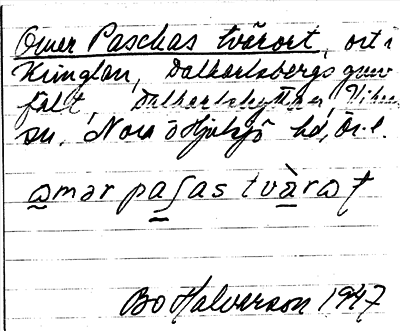 Omer Paschas tvärort, ort i
Kringlan, Dalkarlsbergs gruv-
fält, Dalkarlshyttan, Vikers
sn. Nora o Hjulsjö hd, Ör. l.
ωmər paʃas tvὰrωt
Bo Halverson 1947